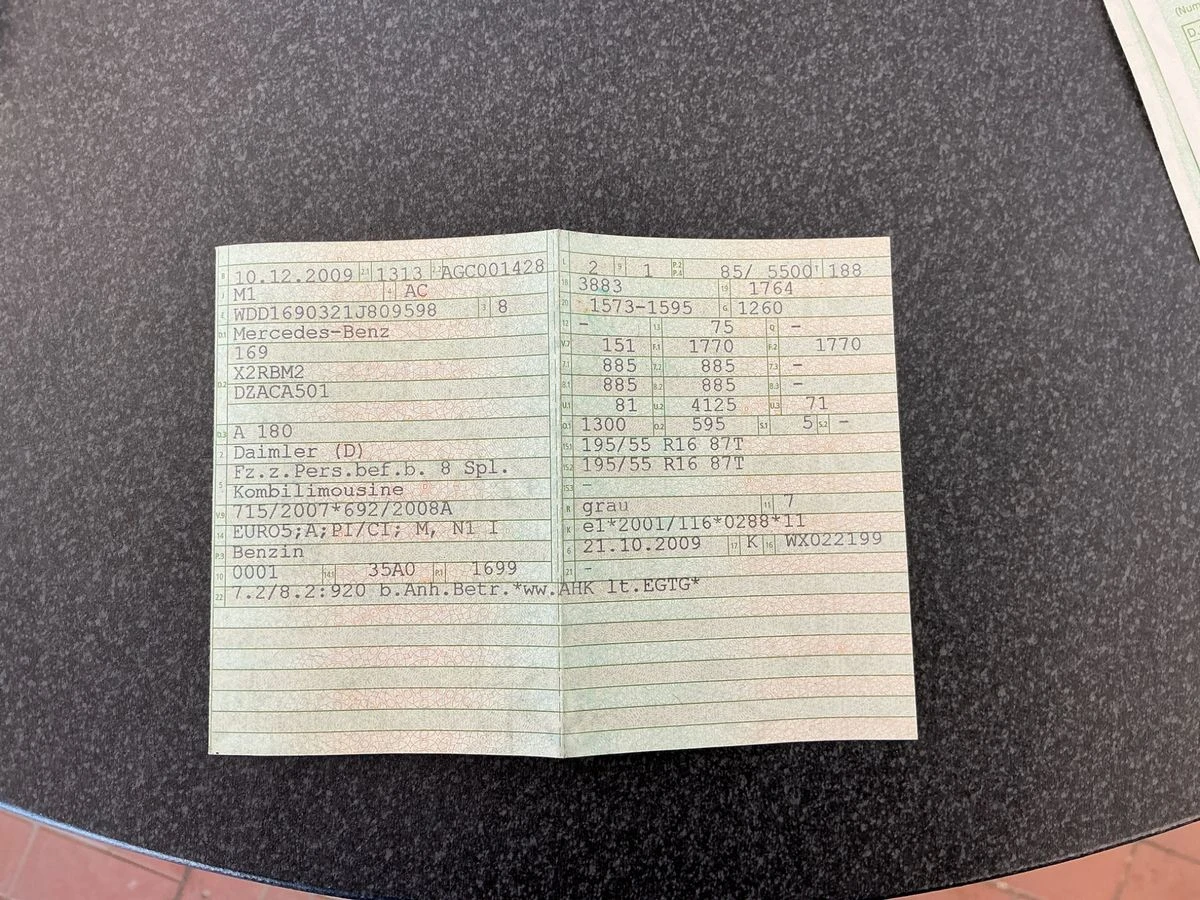 B 10.12.2009 2.1 1313 2.2 AGC001428
J M1 4 AC
E WDD1690321J809598 3 8
D.1 Mercedes-Benz
169
D.2 X2RBM2
DZACA501
D.3 A 180
2 Daimler (D)
5 Fz.z.Pers.bef.b. 8 Spl.
Kombilimousine
V.9 715/2007*692/2008A
14 EURO5;A;PI/CI; M, N1 I
P.3 Benzin
10 0001 14.1 35A0 P.1 1699
22 7.2/8.2:920 b.Anh.Betr.*ww.AHK lt.EGTG*
L 2 9 1 P.2 P.4 85/ 5500 T 188
18 3883 19 1764
20 1573-1595 G 1260
12 - 13 75 Q -
V.7 151 F.1 1770 F.2 1770
7.1 885 7.2 885 7.3 -
8.1 885 8.2 885 8.3 -
U.1 81 U.2 4125 U.3 71
O.1 1300 O.2 595 S.1 5 S.2 -
15.1 195/55 R16 87T
15.2 195/55 R16 87T
15.3 -
R grau 11 7
K e1*2001/116*0288*11
6 21.10.2009 17 K 16 WX022199
21 -
(Num
D.